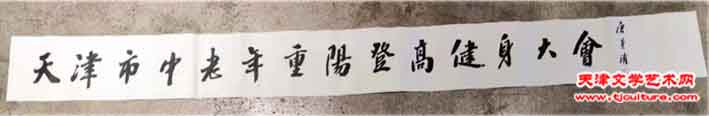 天津市中老年重陽登高健身大會
天津文学艺术网
www.tjculture.com